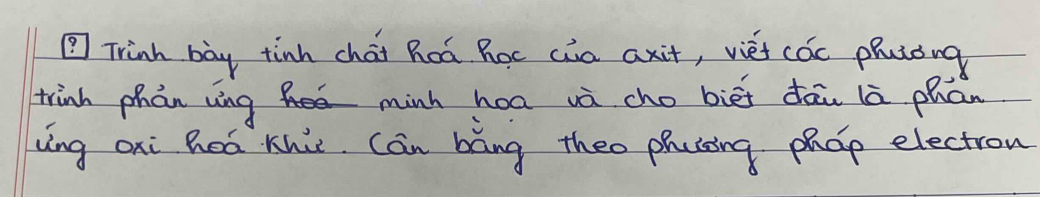 [?] Trình bày tính chất hoá học của axit, viết các phương
trình phản ứng hoá minh hoạ và cho biết đâu là phản
ứng oxi hoá khử. Cân bằng theo phương pháp electron